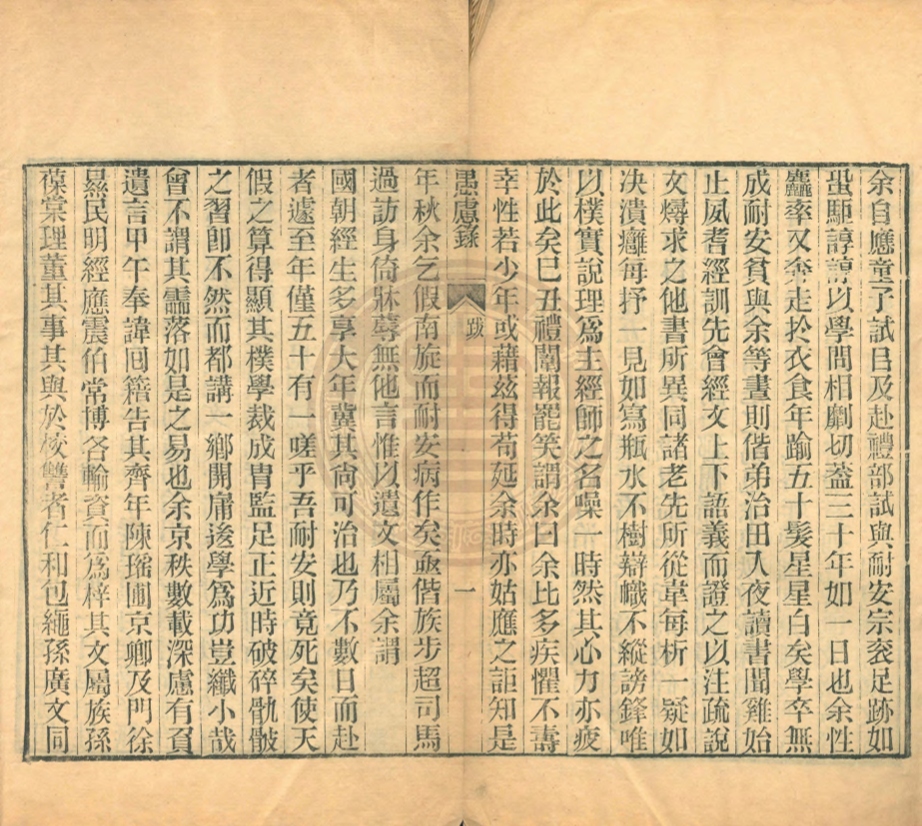 余自應童子試㠯及赴禮部試與耐安宗袞足跡如
蛩駏諄諄以學問相劘切葢三十年如一日也余性
麤率又奔走於衣食年踰五十髮星星白矣學卒無
成耐安貧與余等晝則偕弟治田入夜讀書聞雞始
止夙耆經訓先會經文上下語義而證之以注疏說
文燖求之他書所異同諸老先所從違每析一疑如
決潰癰每抒一見如寫瓶水不樹辯幟不縱謗鋒唯
以樸實說理爲主經師之名噪一時然其心力亦疲
於此矣己丑禮闈報罷笑謂余曰余比多疾懼不壽
幸性若少年或藉茲得苟延余時亦姑應之詎知是
愚慮錄 跋 一
年秋余乞假南旋而耐安病作矣亟偕族步超司馬
過訪身倚牀蓐無他言惟以遺文相屬余謂
國朝經生多享大年冀其尙可治也乃不數日而赴
者遽至年僅五十有一嗟乎吾耐安則竟死矣使天
假之算得顯其樸學裁成胄監足正近時破碎骫骳
之習卽不然而都講一鄉開庸後學爲功豈纖小哉
曾不謂其霝落如是之易也余京秩數載深慮有負
遺言甲午奉諱囘籍告其齊年陳瑶圃京卿及門徐
㬎民明經應震伯常博各輸資而爲梓其文屬族孫
葆棠理董其事其與於校讐者仁和包繩孫廣文同